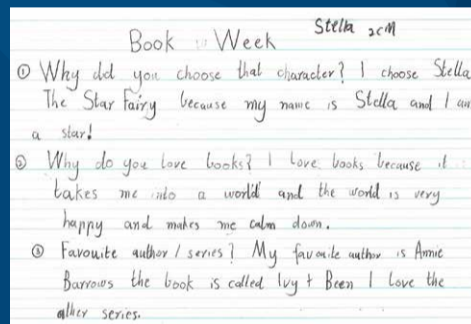 Stella 2CM
Book in Week
① Why did you choose that character? I choose Stella
The Star Fairy because my name is Stella and I am
a star!
② Why do you love books? I love books because it
takes me into a world and the world is very
happy and makes me calm down.
③ Favouite author / series? My favouite author is Annie
Barrows the book is called Ivy + Been I love the
other series.